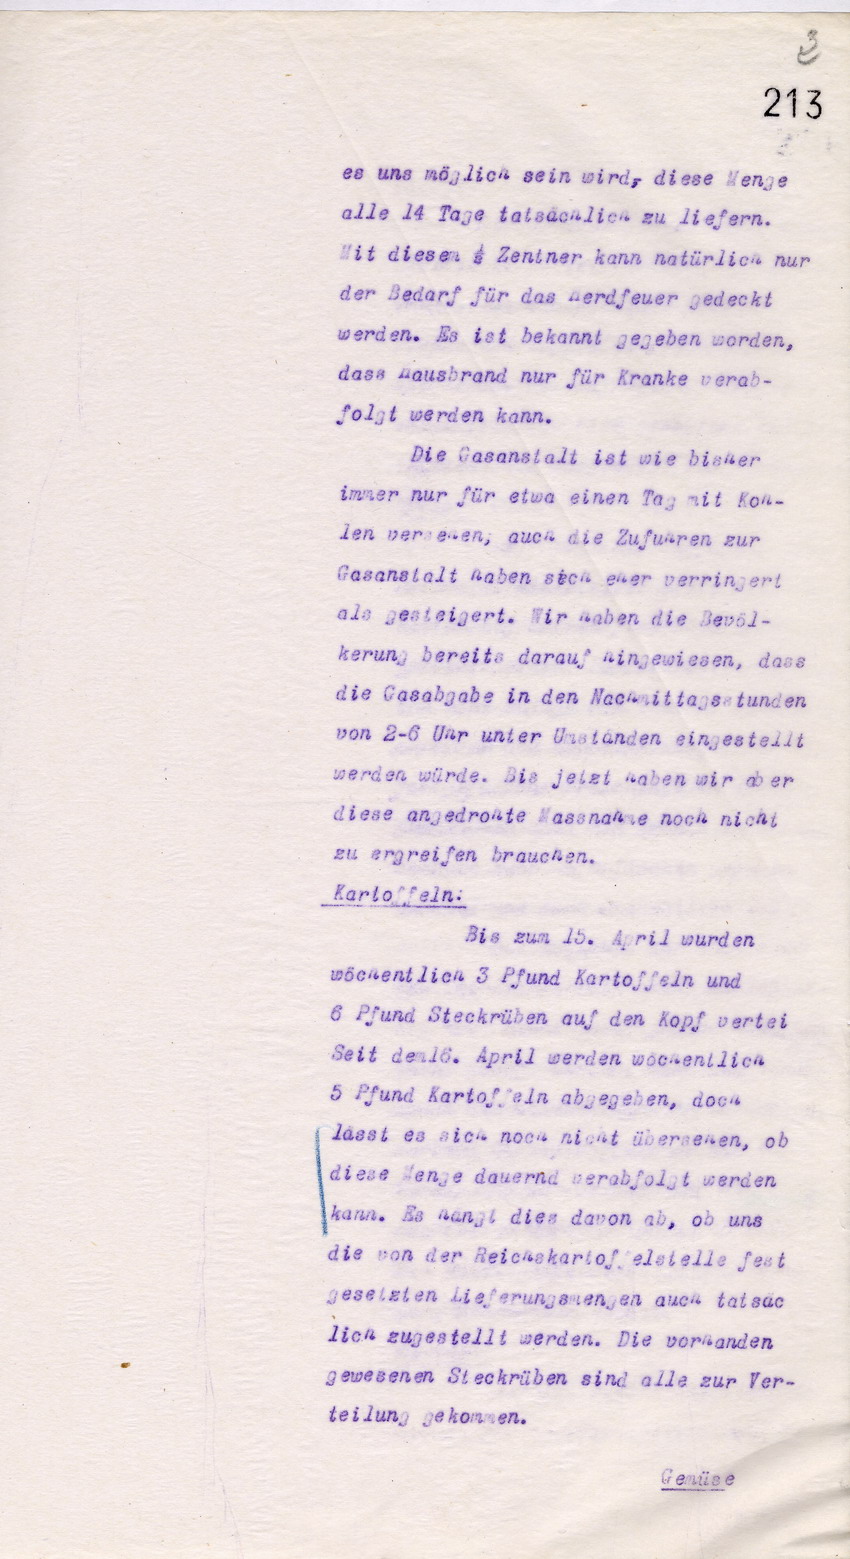 3
213
es uns möglich sein wird, diese Menge
alle 14 Tage tatsächlich zu liefern.
Mit diesem ½ Zentner kann natürlich nur
der Bedarf für das Herdfeuer gedeckt
werden. Es ist bekannt gegeben worden,
dass Hausbrand nur für Kranke verab-
folgt werden kann.
Die Gasanstalt ist wie bisher
immer nur für etwa einen Tag mit Koh-
len versehen; auch die Zufuhren zur
Gasanstalt haben sich eher verringert
als gesteigert. Wir haben die Bevöl-
kerung bereits darauf hingewiesen, dass
die Gasabgabe in den Nachmittagsstunden
von 2-6 Uhr unter Umständen eingestellt
werden würde. Bis jetzt haben wir aber
diese angedrohte Massnahme noch nicht
zu ergreifen brauchen.
Kartoffeln:
Bis zum 15. April wurden
wöchentlich 3 Pfund Kartoffeln und
6 Pfund Steckrüben auf den Kopf vertei
Seit dem16. April werden wöchentlich
5 Pfund Kartoffeln abgegeben, doch
lässt es sich noch nicht übersehen, ob
diese Menge dauernd verabfolgt werden
kann. Es hängt dies davon ab, ob uns
die von der Reichskartoffelstelle fest
gesetzten Lieferungsmengen auch tatsäc
lich zugestellt werden. Die vorhanden
gewesenen Steckrüben sind alle zur Ver-
teilung gekommen.
Gemüse